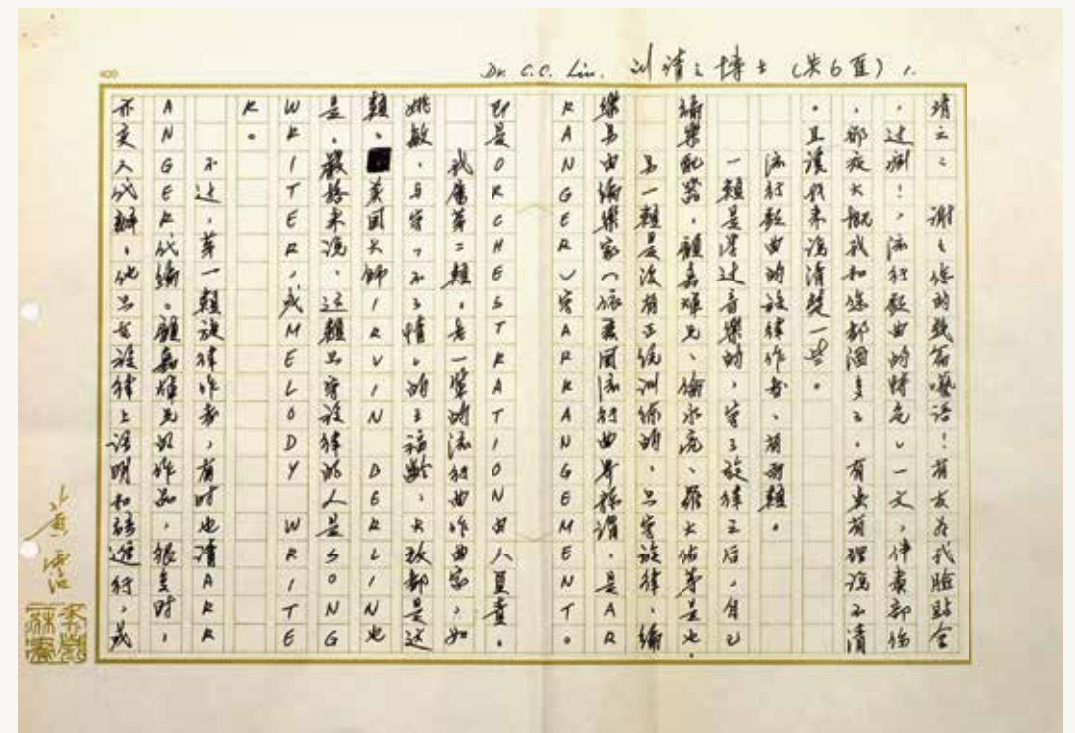 400
Dr. C.C. Liu. 刘靖之博士 (共6頁) 1.
靖之：谢谢您的 语！ 友为我脸贴金
，过瘾！，流行歌曲的特色」一文，
，都夜大概我和您都酒多了。有些有理说不清
。且讓我来说清楚一些。
流行歌曲的旋律作者，有兩類。
一類是学过音樂的，写了旋律之后，自己
編樂配器，顧嘉煇兄、倫永亮、羅大佑等是也。
另一類是没有正统訓練的，只写旋律，編
樂另由編樂家（依美國流行曲界稱謂，是AR
RANGER）写ARRANGEMENT。
即是ORCHESTRATION由人負責。
我屬第二類。老一輩的流行曲作曲家，如
姚敏，与写「不了情」的王福齡，大致都是这
類。英国大師IRVIN BERLIN也
是。嚴格来说，这類只写旋律的人是SONG
WRITER，或MELODY WRITE
R。
不过，第一類旋律作者，有时也请ARR
ANGER代編。顧嘉煇兄的作品，很多时，
亦交人代辦，他只在旋律上註明和絃進行，或
黃霑